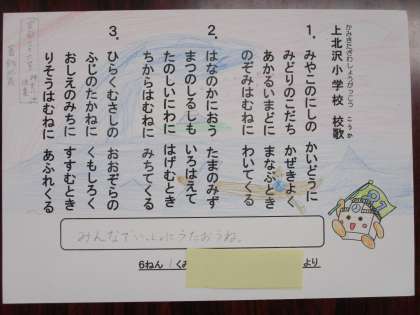 かみきたざわしょうがっこう こうか
上北沢小学校 校歌
1. みやこのにしの かいどうに
みどりのこだち かぜきよく
あかるいまどに まなぶとき
のぞみはむねに わいてくる
2. はなのかにおう たまのみず
まつのしるしも いろはえて
たのしいにわに はげむとき
ちからはむねに みちてくる
3. ひらくむさしの おおぞらの
ふじのたかねに くもしろく
おしえのみちに すすむとき
りそうはむねに あふれくる
みんなでいっしょにうたおうね。
6ねん 1くみ より